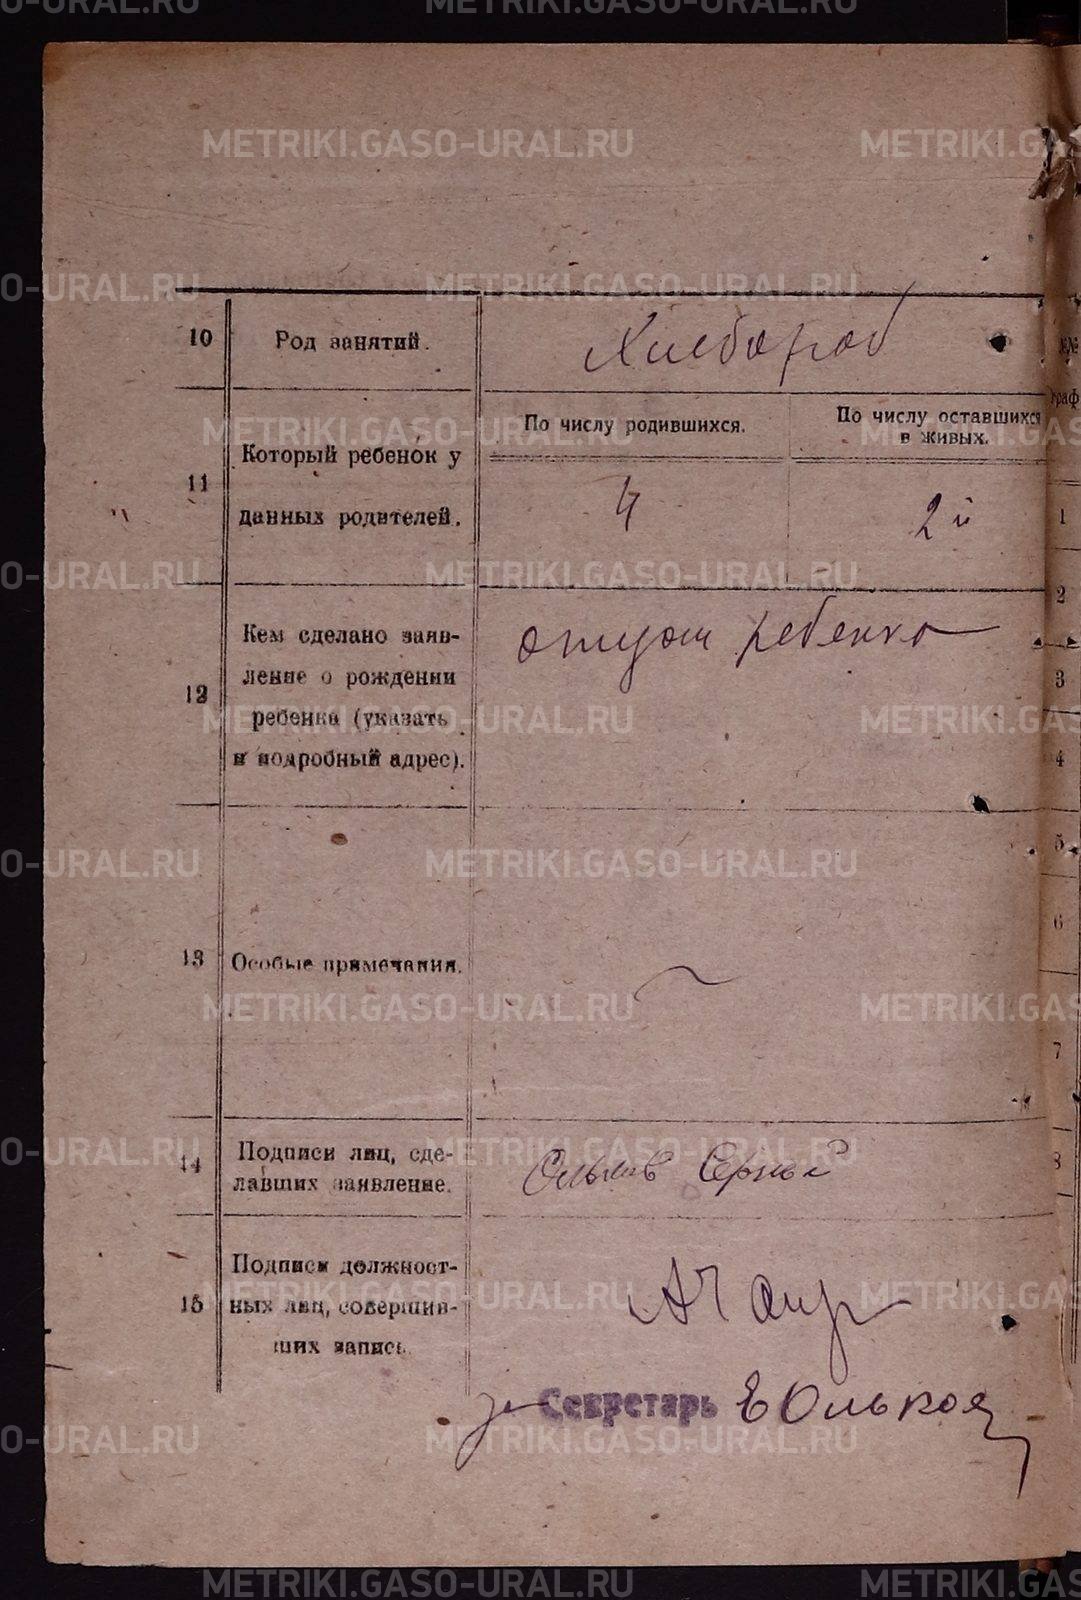 METRIKI.GASO-URAL.RU
10
Род занятий.
Хлебороб
11
Который ребенок у
данных родителей.
По числу родившихся.
По числу оставшихся
в живых.
4
2й
12
Кем сделано заяв-
ление о рождении
ребенка (указать
и подробный адрес).
отцом ребенка
13
Особые примечания.
14
Подписи лиц, сде-
лавших заявление.
15
Подписи должност-
ных лиц, совершив-
ших запись.
за Секретарь Е Ольков
1
2
3
4
5
6
7
8